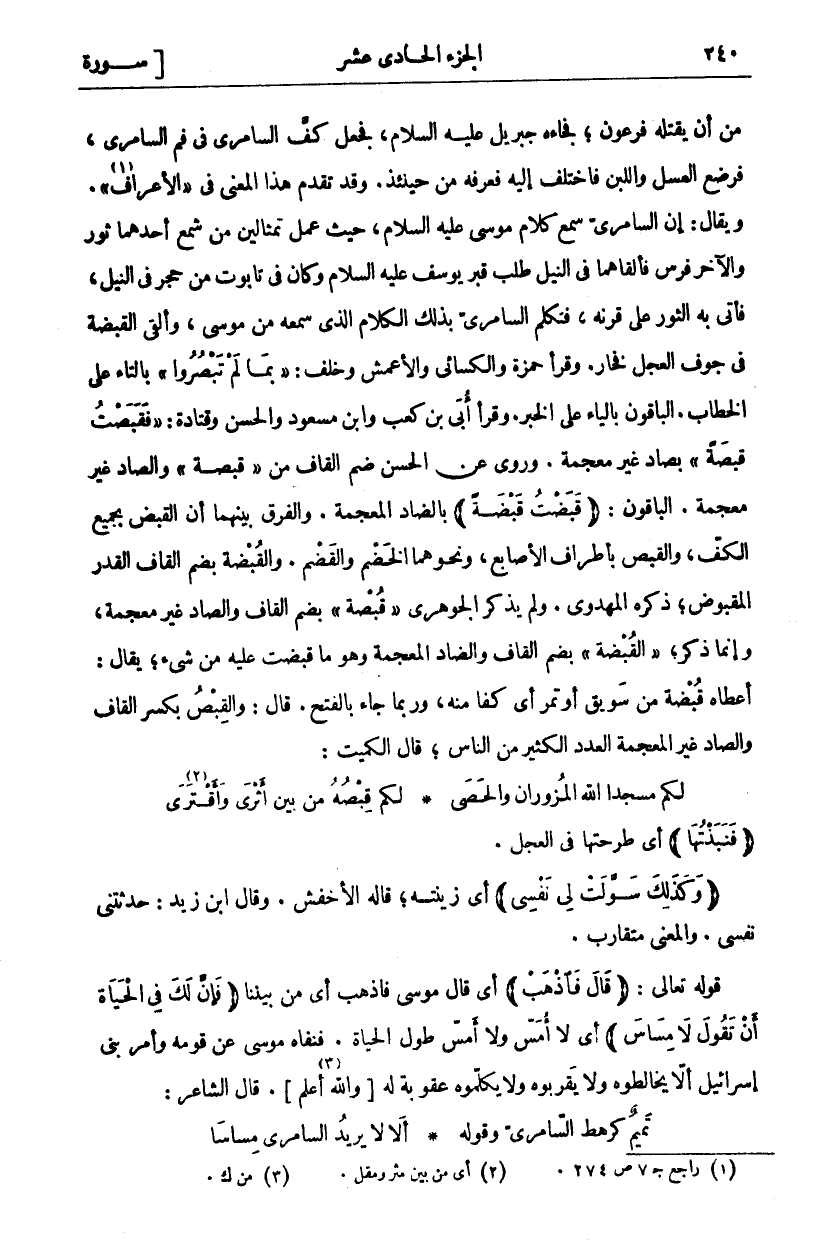 ٢٤٠ الجزء الحادى عشر [ ســورة
من أن يقتله فرعون ؛ فجاءه جبريل عليه السلام، فجعل كفَّ السامرى فى فم السامرى ،
فرضع العسل واللبن فاختلف إليه فعرفه من حينئذ. وقد تقدم هذا المعنى فى «الأعراف»(١).
ويقال: إن السامرىّ سمع كلام موسى عليه السلام، حيث عمل تمثالين من شمع أحدهما ثور
والآخر فرس فألقاهما فى النيل طلب قبر يوسف عليه السلام وكان فى تابوت من حجر فى النيل،
فأتى به الثور على قرنه ، فتكلم السامرىّ بذلك الكلام الذى سمعه من موسى ، وألقى القبضة
فى جوف العجل فخار. وقرأ حمزة والكسائى والأعمش وخلف: « بِمَا لَمْ تَبْصُرُوا » بالتاء على
الخطاب. الباقون بالياء على الخبر. وقرأ أُبَىّ بن كعب وابن مسعود والحسن وقتادة: «فَقَبَصْتُ
قبصَةً » بصاد غير معجمة . وروى عن الحسن ضم القاف من « قبصـة » والصاد غير
معجمة . الباقون : ﴿ قَبَضْتُ قَبْضَـةً ﴾ بالضاد المعجمة . والفرق بينهما أن القبض بجميع
الكفّ، والقبص بأطراف الأصابع، ونحوهما الخَضْم والقَضْم . والقُبْضة بضم القاف القدر
المقبوض؛ ذكره المهدوى . ولم يذكر الجوهرى « قُبْصة » بضم القاف والصاد غير معجمة،
وإنما ذكر؛ « القُبْضة » بضم القاف والضاد المعجمة وهو ما قبضت عليه من شىء؛ يقال :
أعطاه قُبْضة من سَوِيق أو تمر أى كفا منه، وربما جاء بالفتح. قال : والقِبْصُ بكسر القاف
والصاد غير المعجمة العدد الكثير من الناس ؛ قال الكميت :
لكم مسجدا الله المَزُوران والحَصَى * لكم قِبْصُهُ من بين أَثْرَى وَأَقْـتَرَى(٢)
﴿ فَنَبَذْتُهَا ﴾ أى طرحتها فى العجل .
﴿ وَكَذَلِكَ سَـوَّلَتْ لِى نَفْسِى ﴾ أى زينتـه؛ قاله الأخفش . وقال ابن زيد : حدثتنى
نفسى . والمعنى متقارب .
قوله تعالى : ﴿ قَالَ فَاذْهَبْ ﴾ أى قال موسى فاذهب أى من بيننا ﴿ فَإِنَّ لَكَ فِى الْحَيَاةِ
أَنْ تَقُولَ لَا مِسَاسَ ﴾ أى لا أُمَسّ ولا أَمسّ طول الحياة . فنفاه موسى عن قومه وأمر بنى
إسرائيل ألّا يخالطوه ولا يَقربوه ولا يكلّموه عقوبة له [ والله أعلم ](٣) . قال الشاعر :
تَمِيمٌ كرهط السّامرىّ وقوله * ألَا لا يريدُ السامرى مِساسَا
(١) راجع جـ ٧ ص ٢٧٤ . (٢) أى من بين مثر ومقل . (٣) من ك .